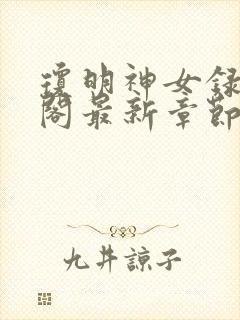 瓊明神女録
閣最新章節
九井諒子